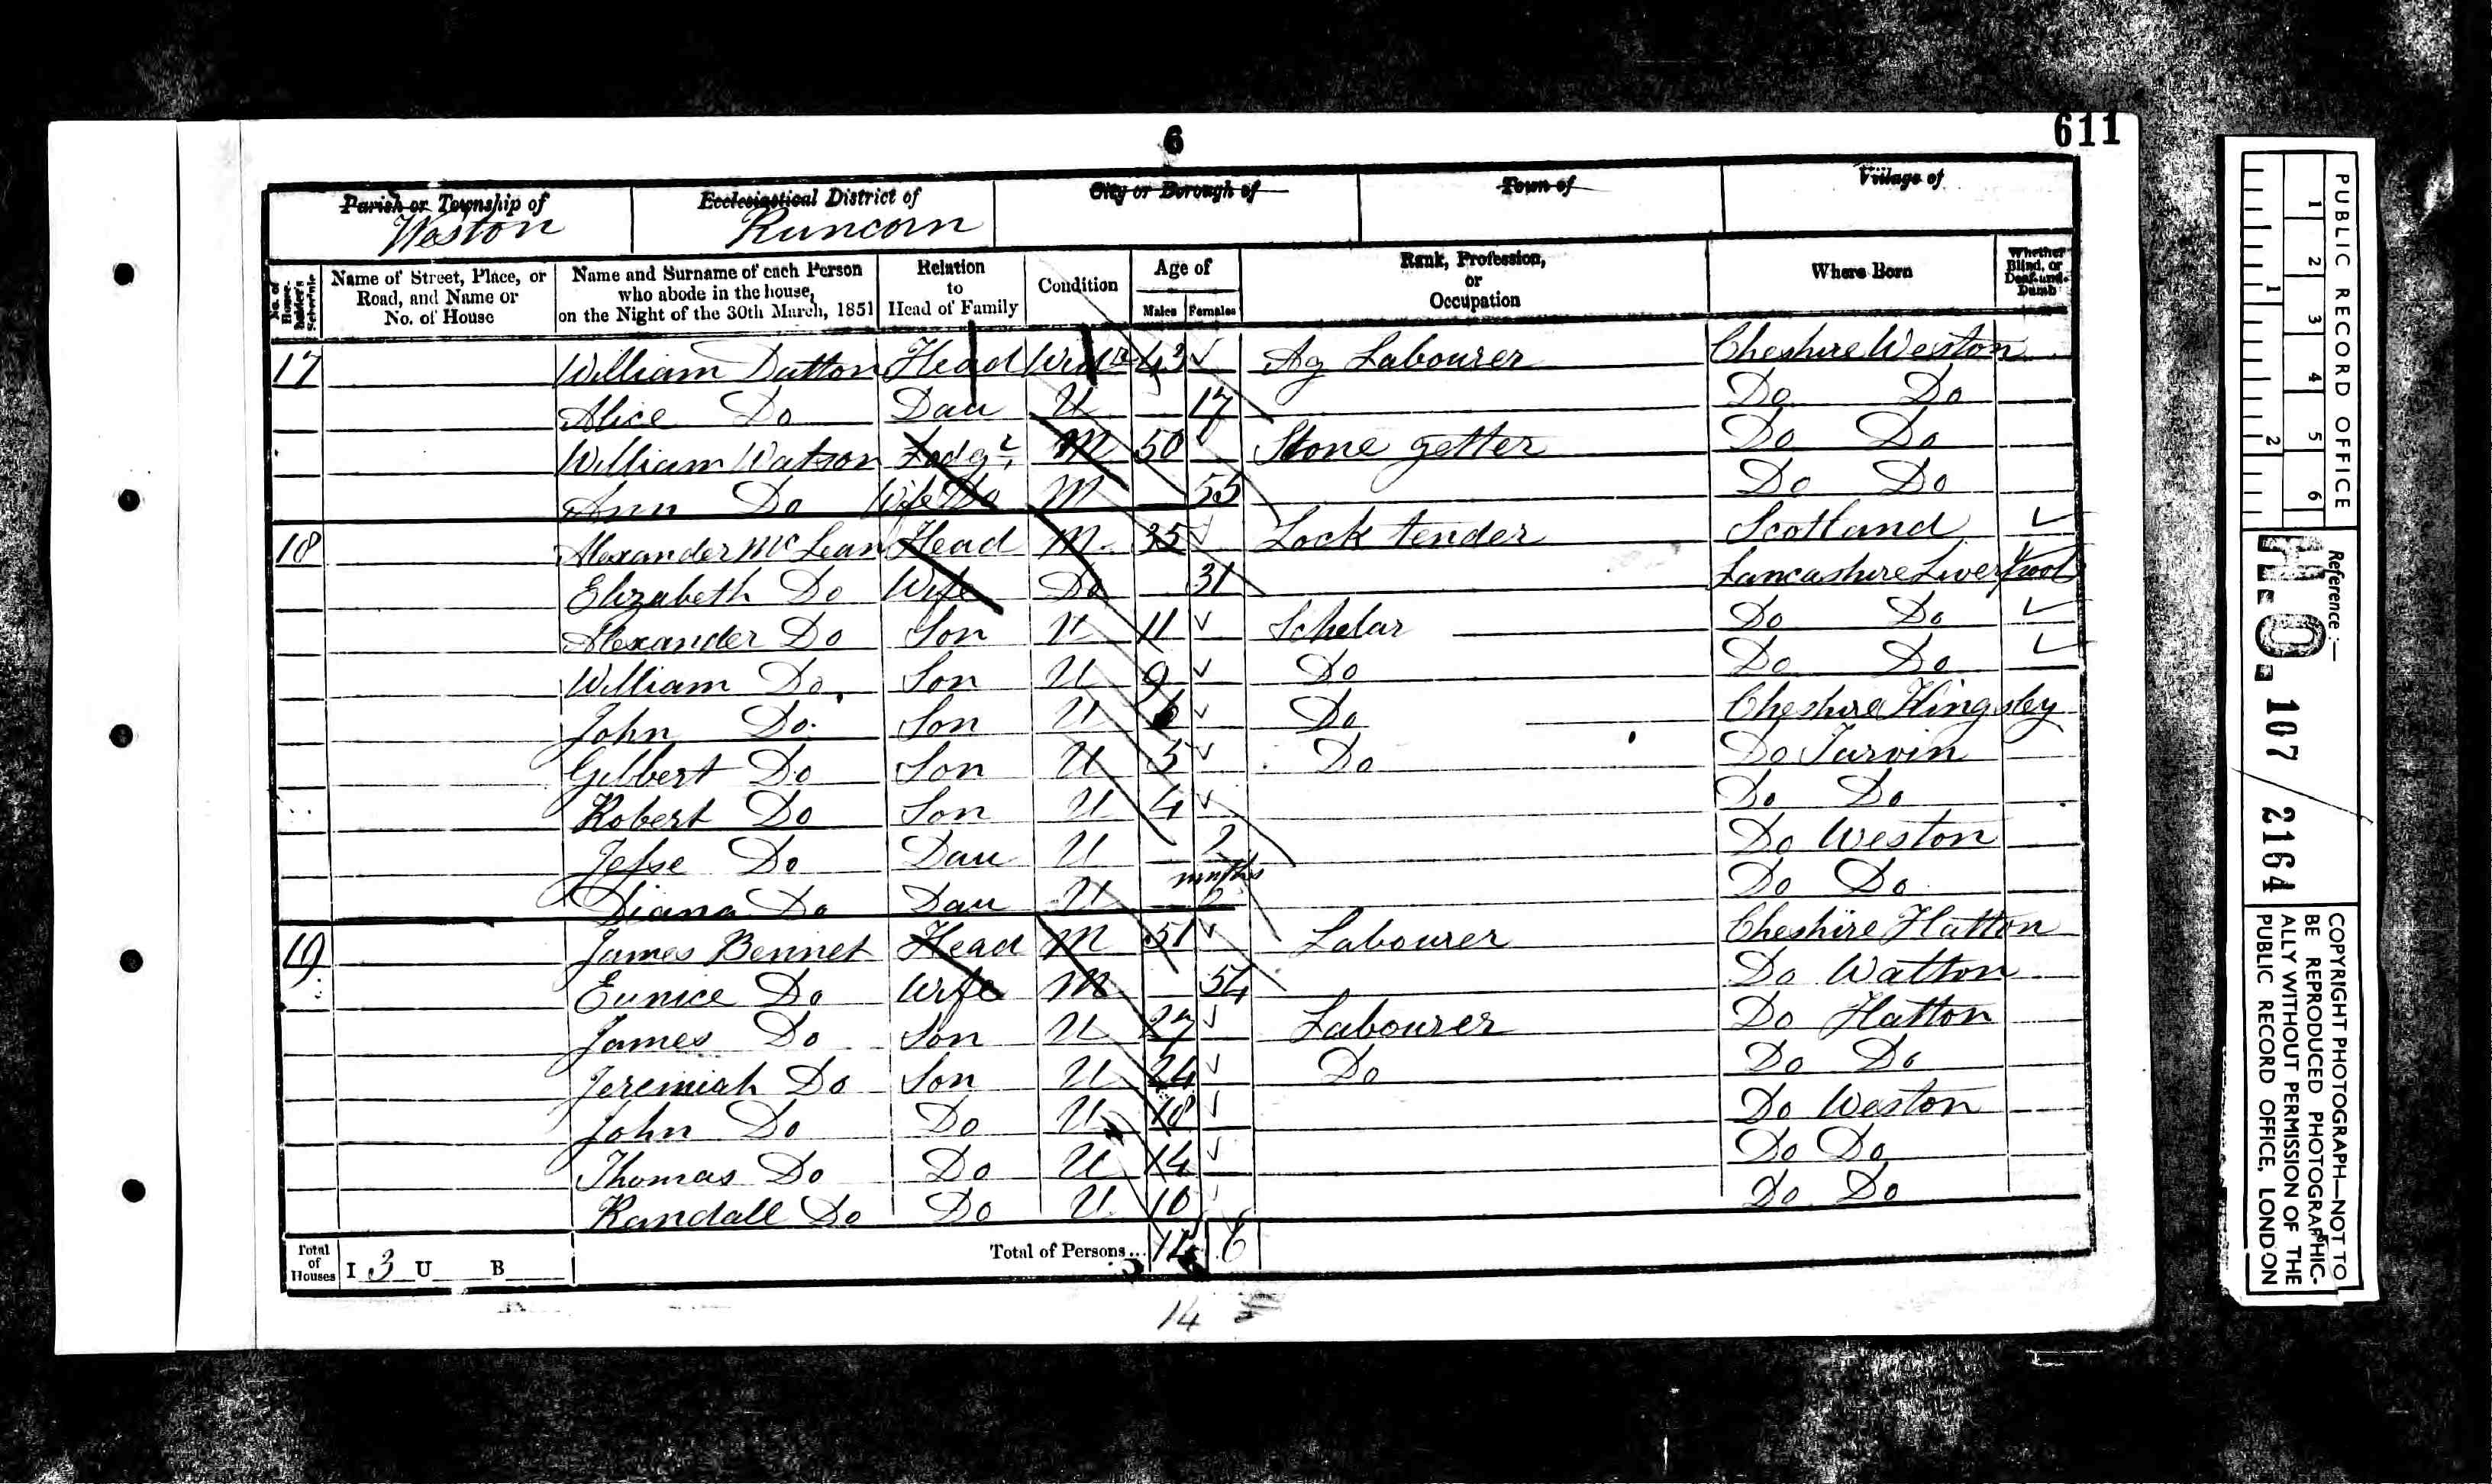 6
611
Parish or Township of
Weston
Ecclesiastical District of
Runcorn
City or Borough of
Town of
Village of
No. of Householder's Schedule
Name of Street, Place, or Road, and Name or No. of House
Name and Surname of each Person who abode in the house, on the Night of the 30th March, 1851
Relation to Head of Family
Condition
Age of
Males Females
Rank, Profession, or Occupation
Where Born
Whether Blind, or Deaf-and-Dumb
17 William Dutton Head Widr 43 Ag Labourer Cheshire Weston
Alice Do Dau U 17 Do Do
William Watson Lodgr M 50 Stone getter Do Do
Ann Do Wife Do M 55 Do Do
18 Alexander McLean Head M 35 Lock tender Scotland
Elizabeth Do Wife Do 31 Lancashire Liverpool
Alexander Do Son U 11 Scholar Do Do
William Do Son U 9 Do Do Do
John Do Son U 6 Do Cheshire Kingsley
Gilbert Do Son U 5 Do Do Tarvin
Robert Do Son U 4 Do Do
Jesse Do Dau U 2 Do Weston
Diana Do Dau U months Do Do
19 James Bennet Head M 51 Labourer Cheshire Hatton
Eunice Do Wife M 54 Do Watton
James Do Son U 27 Labourer Do Hatton
Jeremiah Do Son U 24 Do Do Do
John Do Do U 18 Do Weston
Thomas Do Do U 14 Do Do
Randall Do Do U 10 Do Do
Total of Houses I 3 U B
Total of Persons... 6
14
PUBLIC RECORD OFFICE
1 2 3 4 5 6
1 2
Reference:—
H.O. 107 / 2164
COPYRIGHT PHOTOGRAPH—NOT TO
BE REPRODUCED PHOTOGRAPHIC-
ALLY WITHOUT PERMISSION OF THE
PUBLIC RECORD OFFICE, LONDON